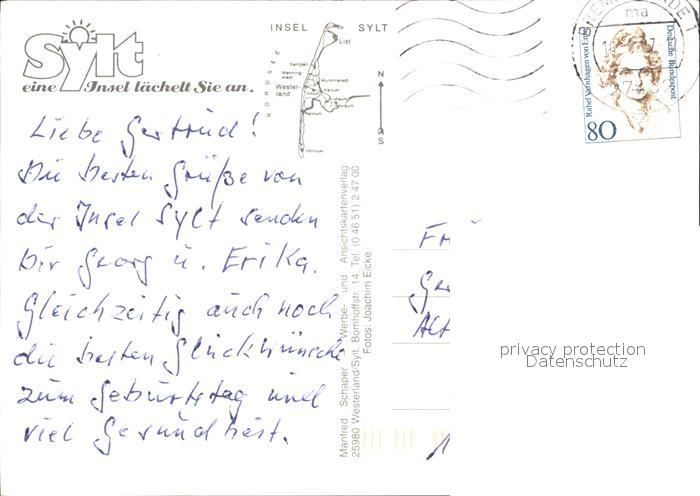 Sylt
eine Insel lächelt Sie an.
INSEL SYLT
NORDSEE
List
Kampen
Wenning-
stedt
Wester-
land
Keitum
Rantum
Hörnum
N
S
Liebe Gertrud!
Die besten Grüße von
der Insel Sylt senden
Dir Georg u. Erika.
Gleichzeitig auch noch
die besten Glückwünsche
zum Geburtstag und
viel Gesundheit.
Manfred Schaper Werbe- und Ansichtskartenverlag
25980 Westerland/Sylt, Bomhoffstr. 14, Tel. (0 46 51) 2 47 00
Fotos: Joachim Eicke
ma
Rahel Varnhagen von Ense
Deutsche Bundespost
80
Fr
Ger
Alt
privacy protection
Datenschutz